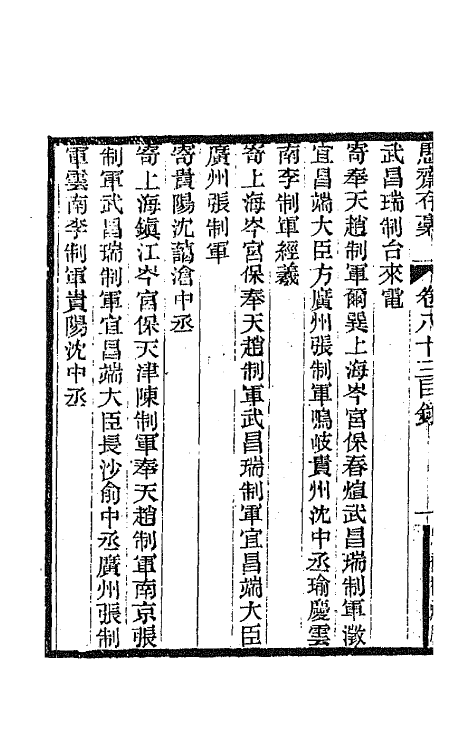 愚齋存稾 卷八十三目錄 一
武昌瑞制台來電
寄奉天趙制軍爾巽上海岑宮保春煊武昌瑞制軍澂
宜昌端大臣方廣州張制軍鳴岐貴州沈中丞瑜慶雲
南李制軍經羲
寄上海岑宮保奉天趙制軍武昌瑞制軍宜昌端大臣
廣州張制軍
寄貴陽沈藹滄中丞
寄上海鎮江岑宮保天津陳制軍奉天趙制軍南京張
制軍武昌瑞制軍宜昌端大臣長沙俞中丞廣州張制
軍雲南李制軍貴陽沈中丞